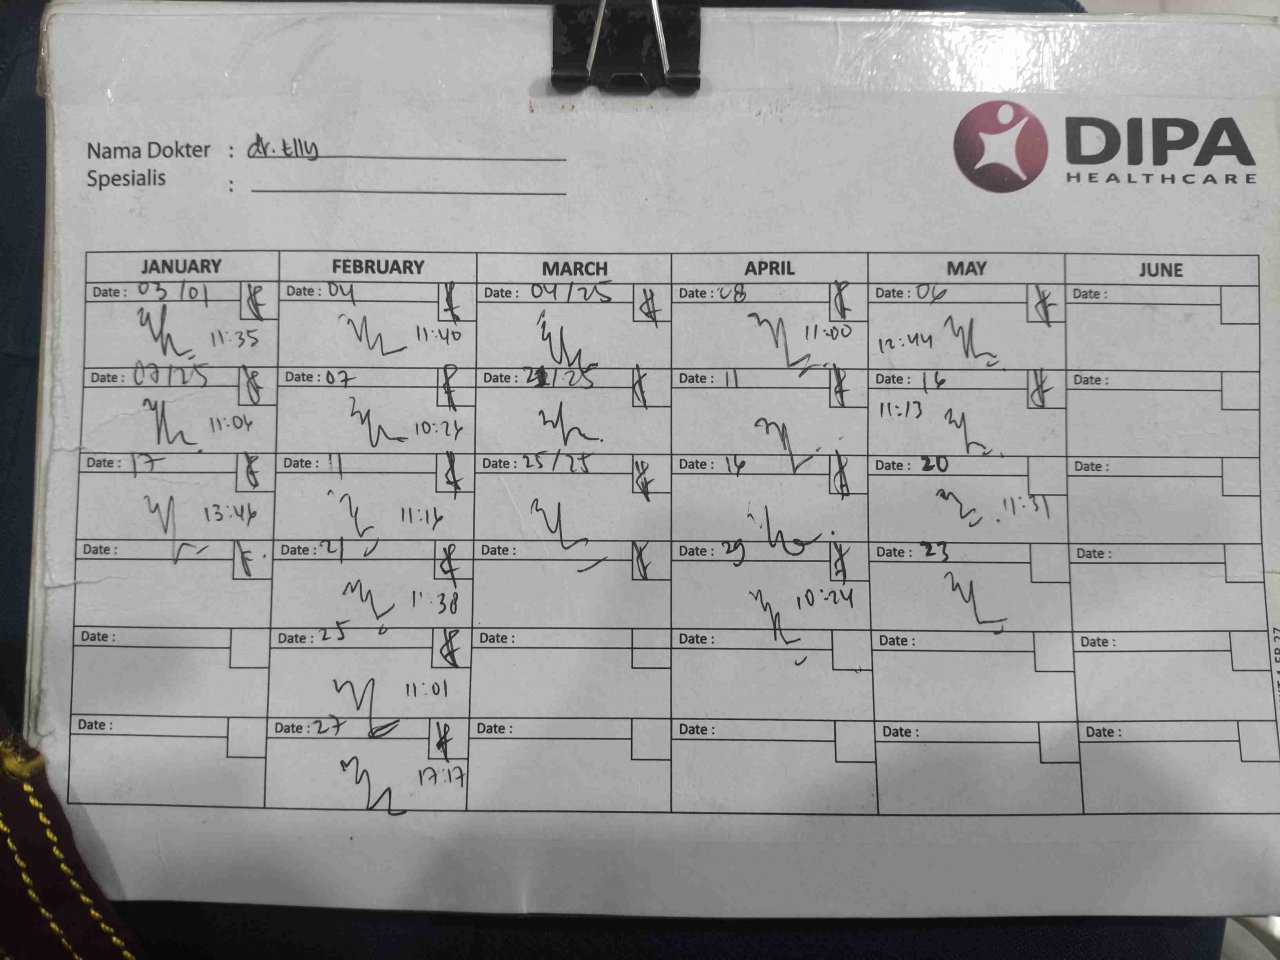 Nama Dokter : dr. Elly
Spesialis :
DIPA
HEALTHCARE
JANUARY FEBRUARY MARCH APRIL MAY JUNE
Date : 03/01 Date : 04 Date : 04/25 Date : 08 Date : 06 Date :
11:35 11:40 11:00 12:44
Date : 07/25 Date : 07 Date : 21/25 Date : 11 Date : 16 Date :
11:04 10:24 11:13
Date : 17 Date : 11 Date : 25/25 Date : 16 Date : 20 Date :
13:46 11:16 11:31
Date : Date : 21 Date : Date : 29 Date : 23 Date :
11:38 10:24
Date : Date : 25 Date : Date : Date : Date :
11:01
Date : Date : 27 Date : Date : Date : Date :
17:17